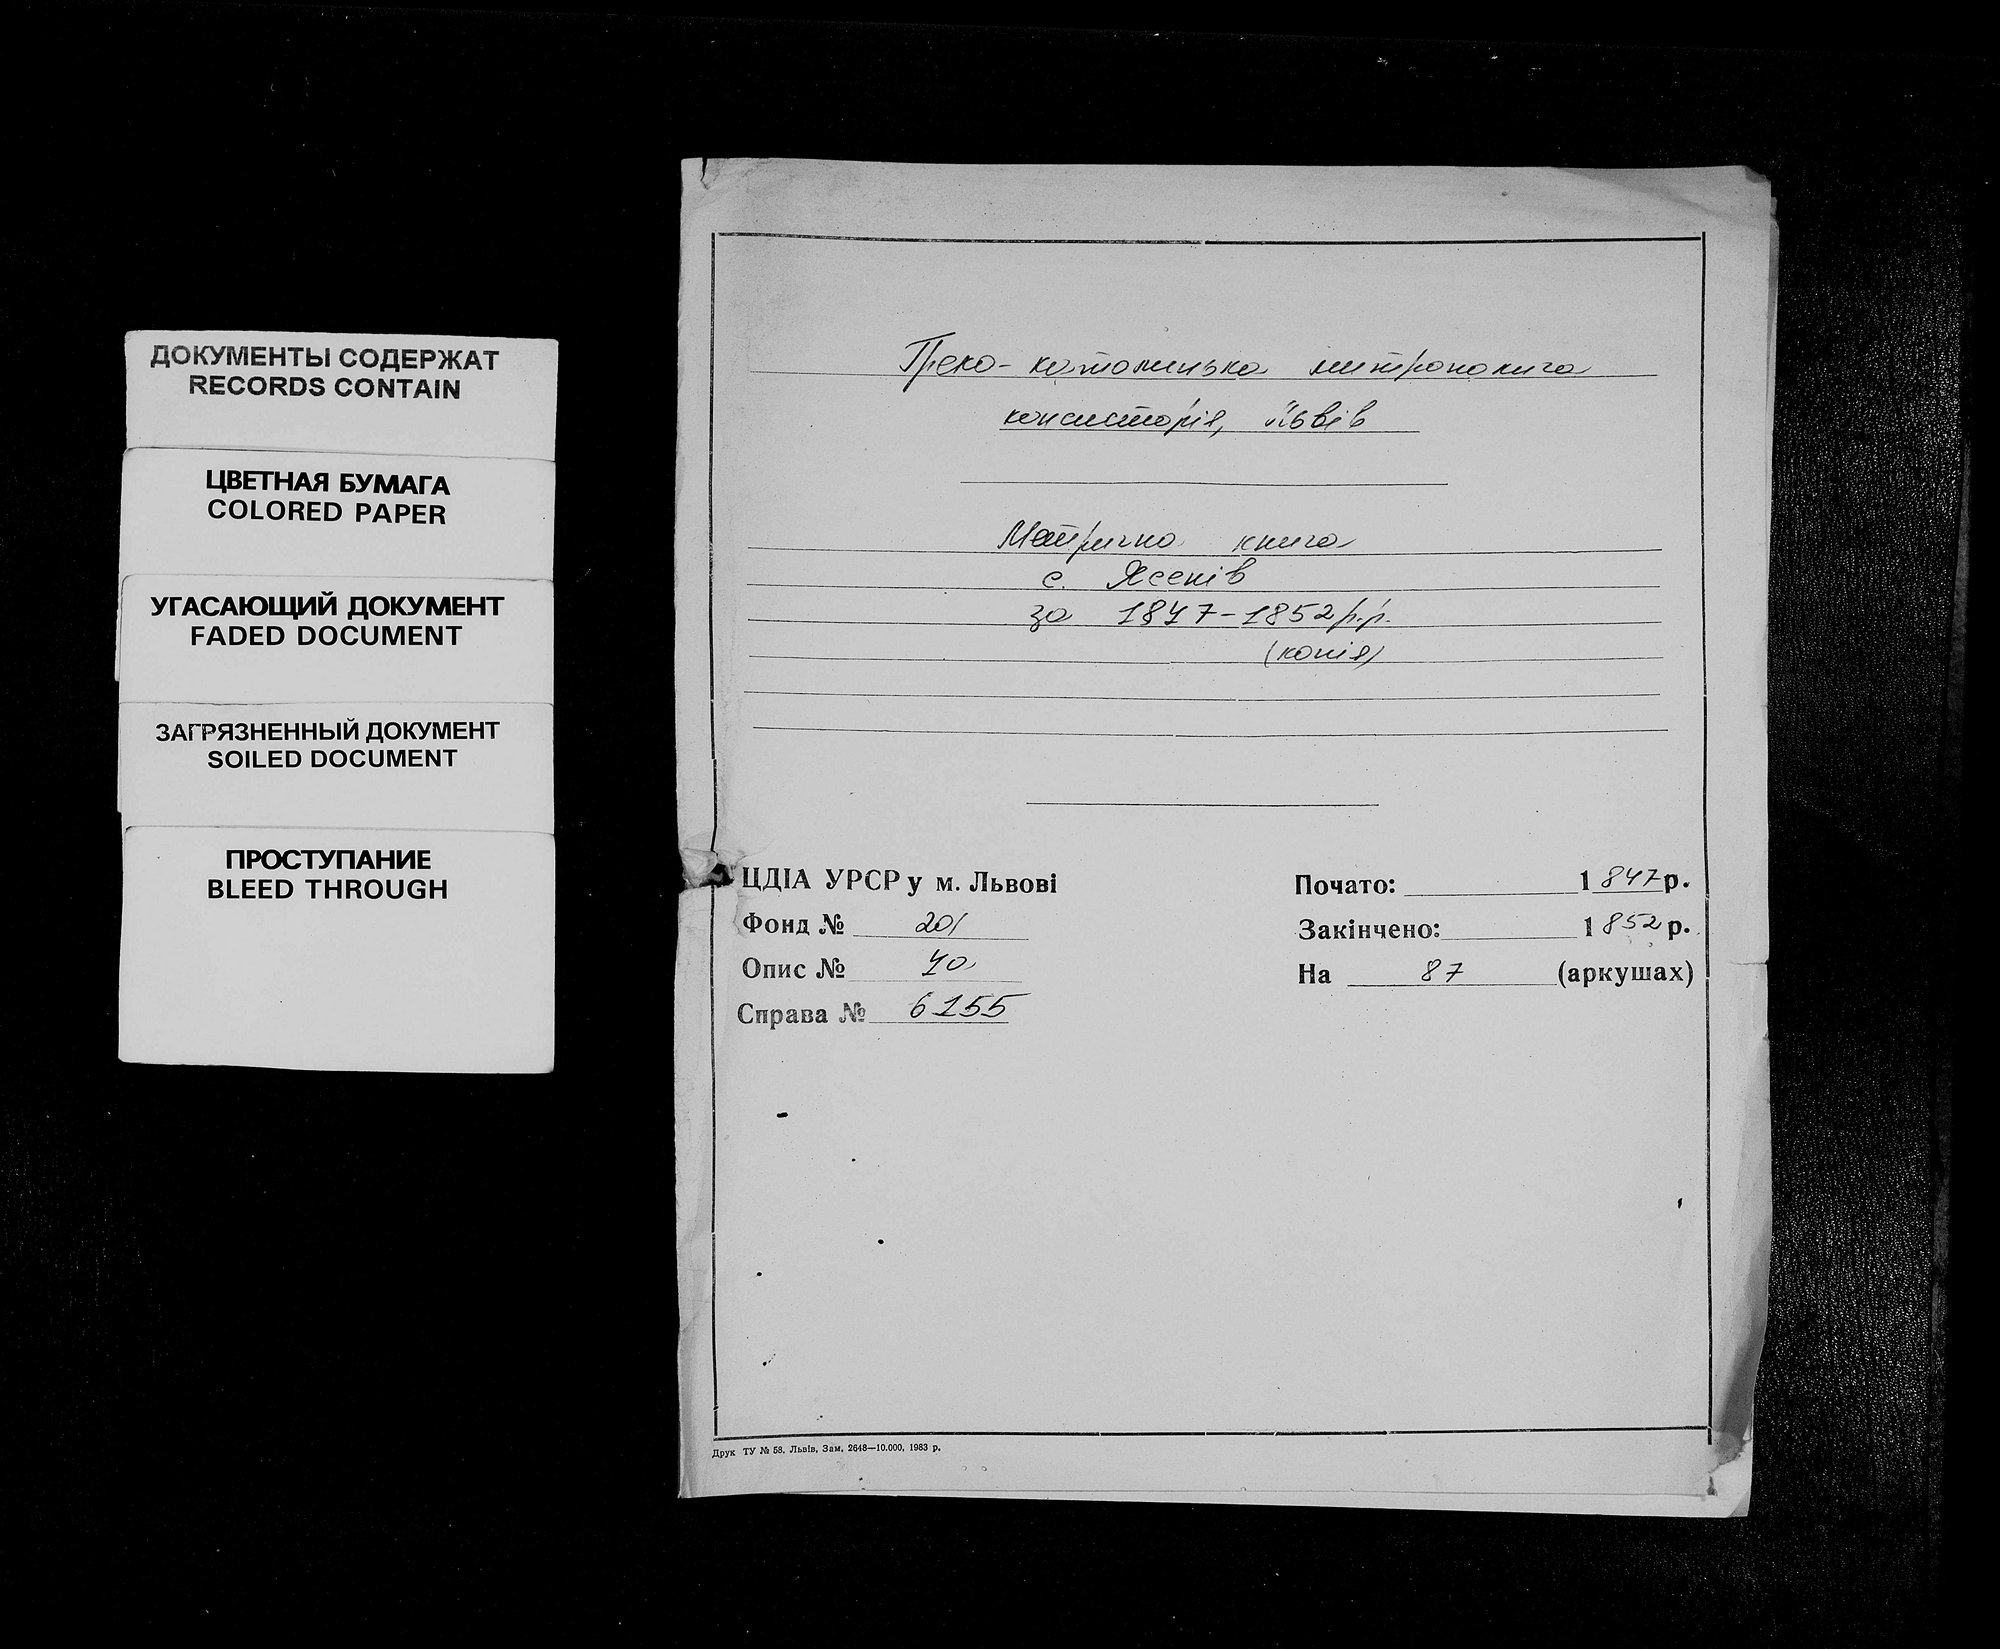 ДОКУМЕНТЫ СОДЕРЖАТ
RECORDS CONTAIN
ЦВЕТНАЯ БУМАГА
COLORED PAPER
УГАСАЮЩИЙ ДОКУМЕНТ
FADED DOCUMENT
ЗАГРЯЗНЕННЫЙ ДОКУМЕНТ
SOILED DOCUMENT
ПРОСТУПАНИЕ
BLEED THROUGH
Греко-католицька митрополича
консисторія, Львів
Метрична книга
с. Ясенів
за 1847-1852 р.р.
(копія)
ЦДІА УРСР у м. Львові
Фонд № 201
Опис № 4а
Справа № 6155
Почато: 1847 р.
Закінчено: 1852 р.
На 87 (аркушах)
Друк ТУ № 58. Львів, Зам. 2648—10.000, 1983 р.